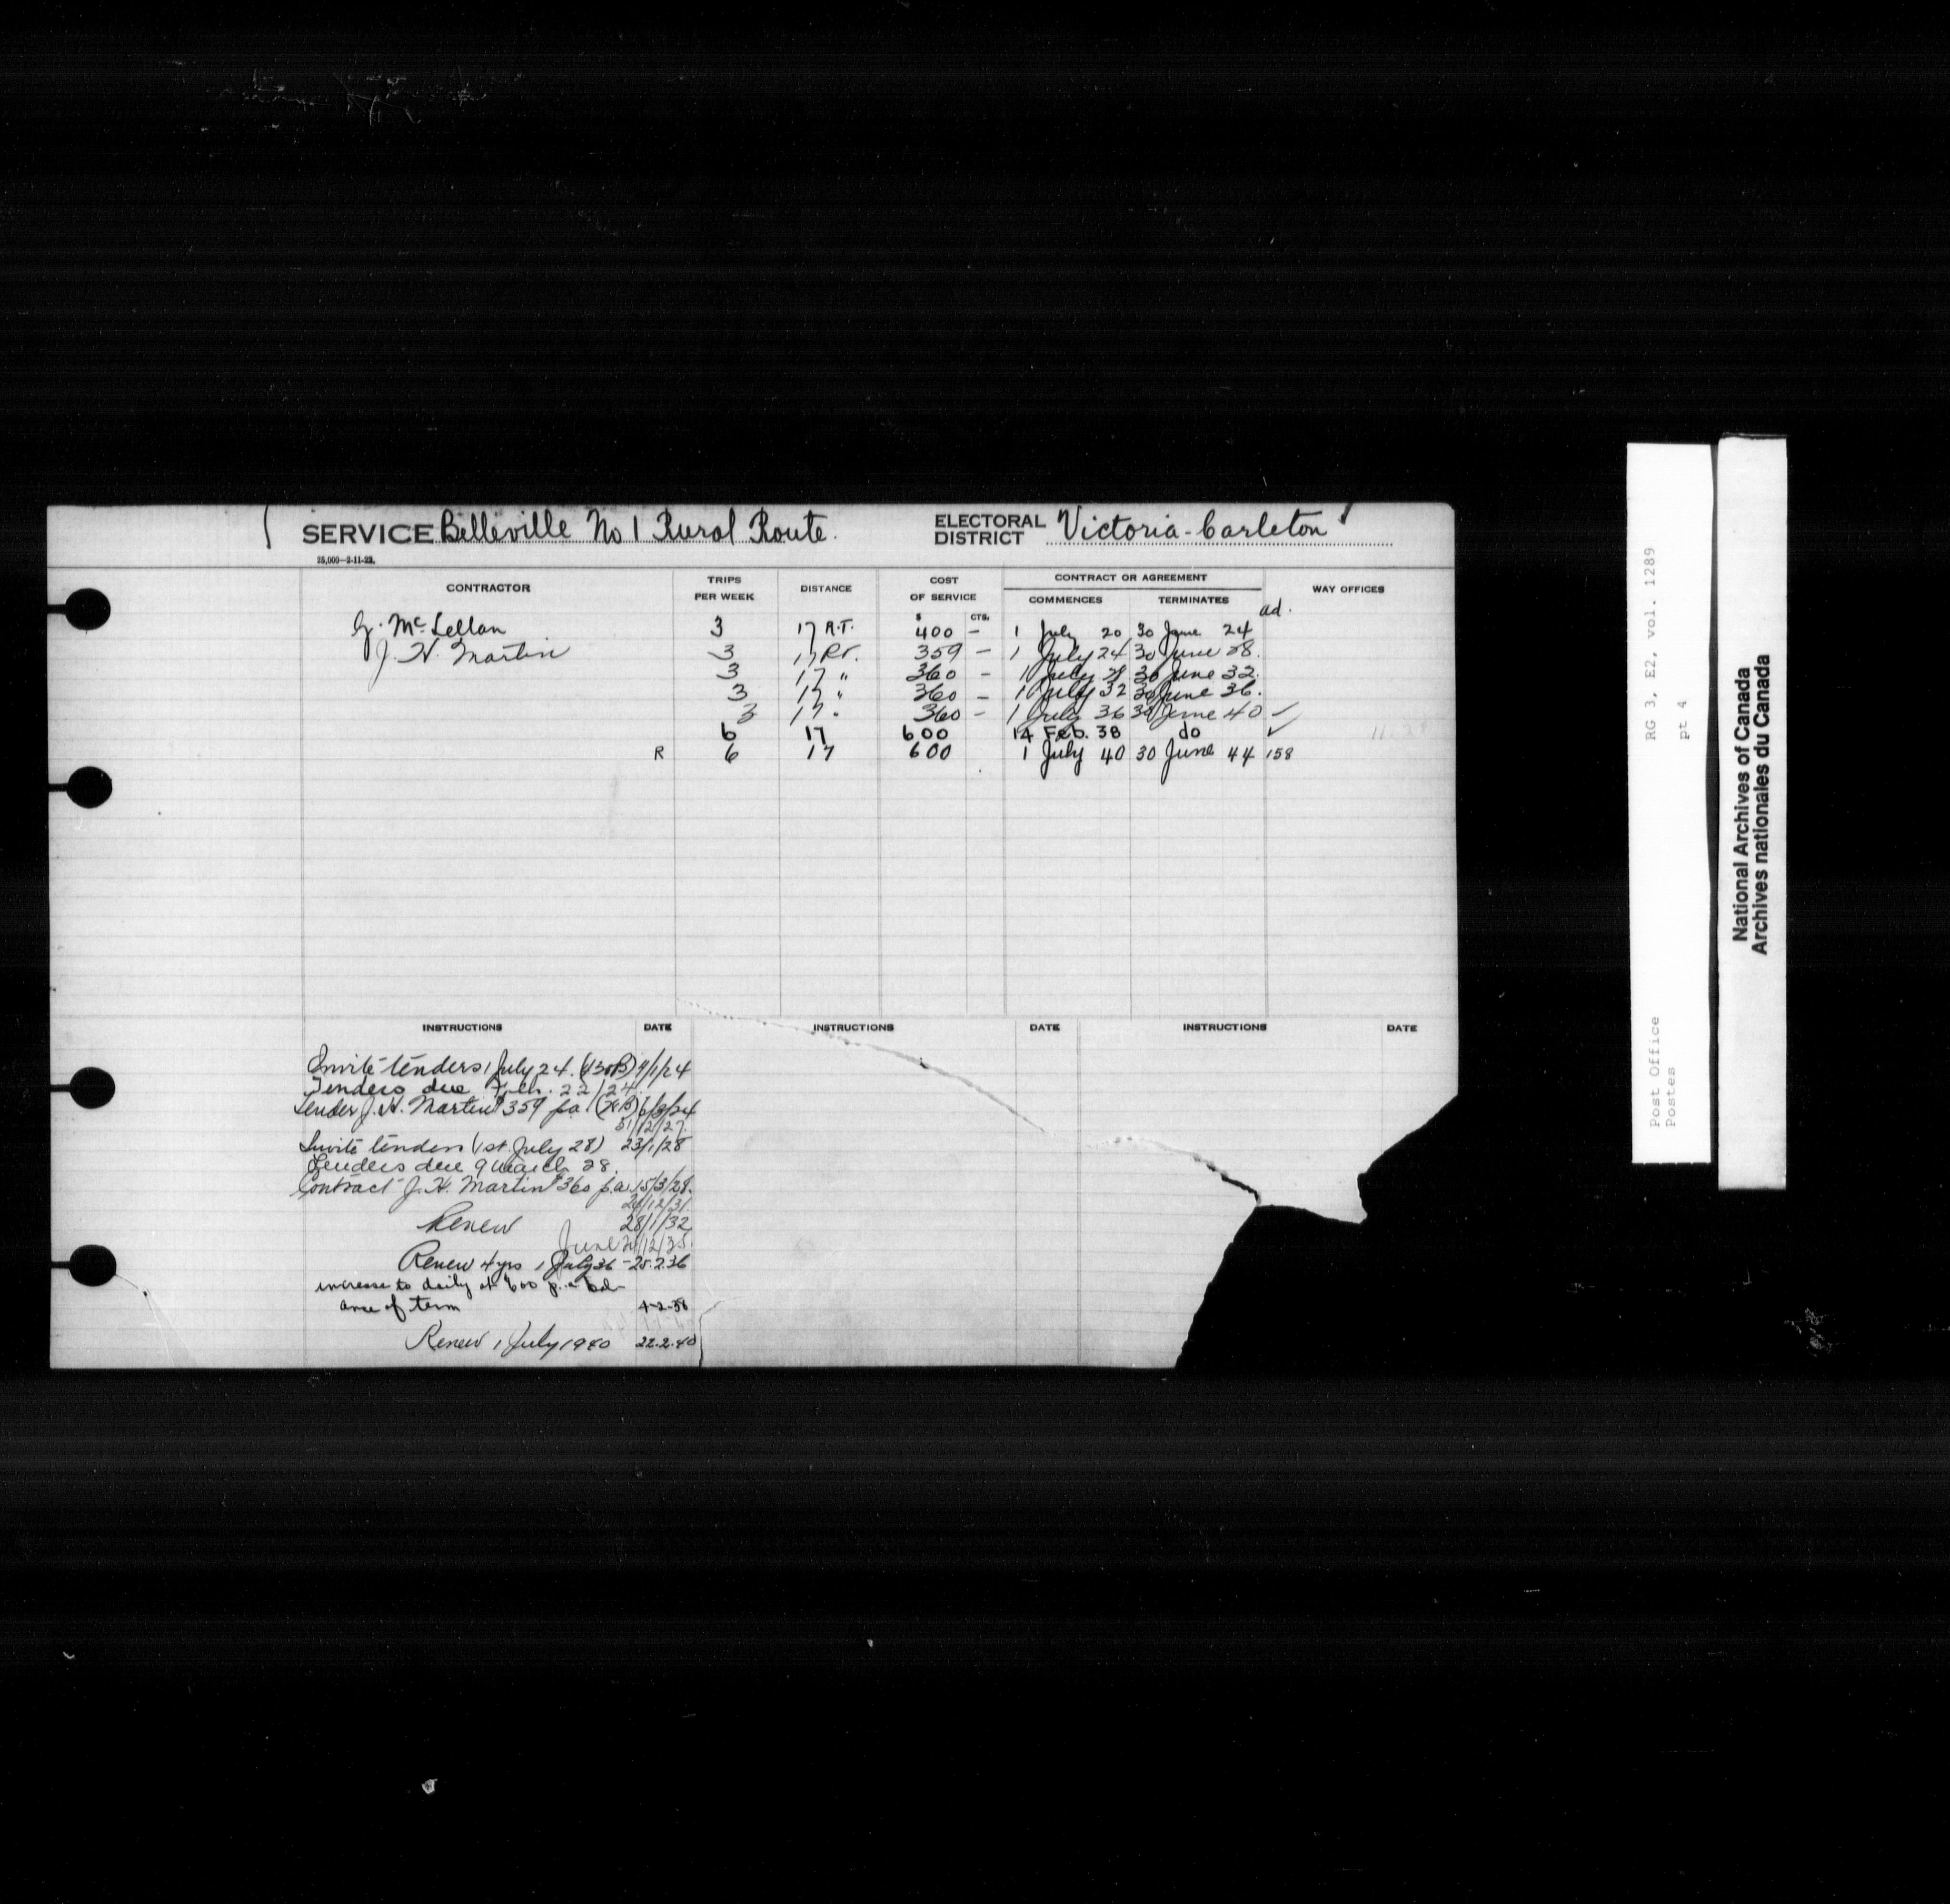 SERVICE Belleville No 1 Rural Route. ELECTORAL DISTRICT Victoria-Carleton
25,000—2-11-22.
CONTRACTOR TRIPS PER WEEK DISTANCE COST OF SERVICE CONTRACT OR AGREEMENT WAY OFFICES
$ CTS. COMMENCES TERMINATES ad.
G. McLellan 3 17 R.T. 400 — 1 July 20 30 June 24
J. H. Martin 3 17 R.T. 359 — 1 July 24 30 June 28.
3 17 " 360 — 1 July 28 30 June 32.
3 17 " 360 — 1 July 32 30 June 36.
3 17 " 360 — 1 July 36 30 June 40 ✓
6 17 600 14 Feb. 38 do ✓
R 6 17 600 1 July 40 30 June 44 158
INSTRUCTIONS DATE INSTRUCTIONS DATE INSTRUCTIONS DATE
Invite tenders 1 July 24. 9/1/24
Tenders due Feb. 22/24
Tender J. H. Martin $359 pa. 6/3/24
31/12/27.
Invite tenders (1st. July 28) 23/1/28
Tenders due 9 March 28.
Contract J. H. Martin $360 p.a. 15/3/28.
/12/31.
Renew 28/1/32
June /12/35.
Renew 4 yrs 1 July 36 - 25.2.36
increase to daily at $600 p.a. bal-
ance of term 4-2-38
Renew 1 July 1940 22.2.40
Post Office RG 3, E2, vol. 1289
Postes pt 4
National Archives of Canada
Archives nationales du Canada